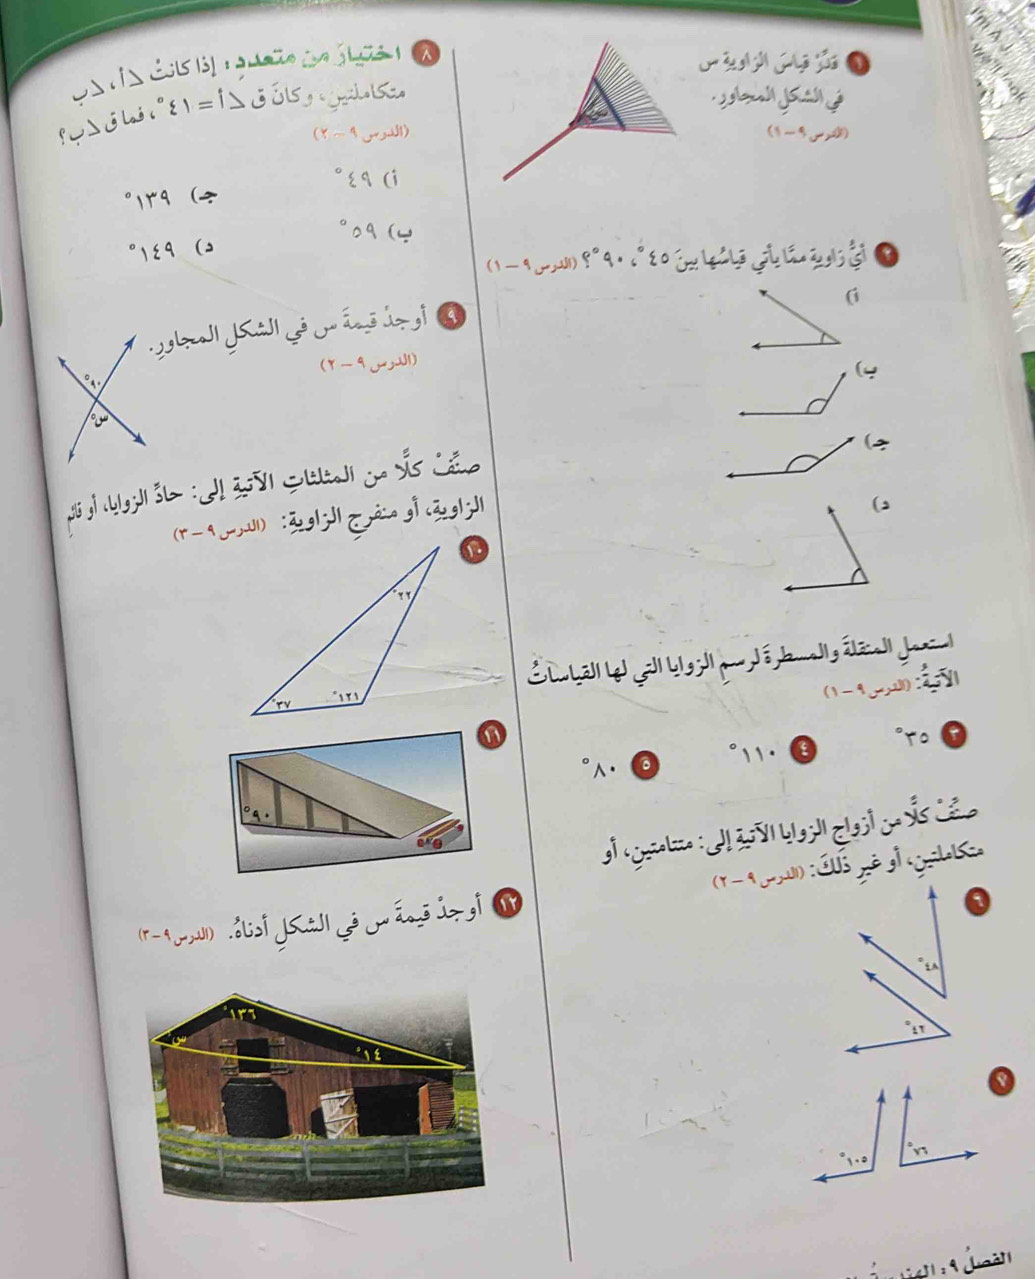 ١ قدِّر قياسَ الزاويةِ س
في الشكلِ المجاورِ.
(الدرس ٩ – ١)
س°
٢ أيُّ زاويةٍ ممَّا يأتي قياسُها بينَ ٤٥°، ٩٠°؟ (الدرس ٩ – ١)
أ)
ب)
جـ)
د)
استعملِ المنقلةَ والمسطرةَ لرسمِ الزوايا التي لها القياساتُ
الآتيةُ: (الدرس ٩ – ١)
٣ ٣٥° ٤ ١١٠° ٥ ٨٠°
صنِّفْ كلًّا من أزواجِ الزوايا الآتيةِ إلى: متتامتينِ، أو
متكاملتينِ، أو غيرِ ذلكَ: (الدرس ٩ – ٢)
٦
٤٨°
٤٢°
٧
١٠٥° ٧٦°
٨ اختيارٌ من متعددٍ: إذا كانتْ ∠أ، ∠ب
متكاملتينِ، وكانَ ق∠أ = ٤١°، فما ق∠ب؟
(الدرس ٩ – ٢)
أ) ٤٩° جـ) ١٣٩°
ب) ٥٩° د) ١٤٩°
٩ أوجدْ قيمةَ س في الشكلِ المجاورِ.
(الدرس ٩ – ٢)
٩٠°
س°
صنِّفْ كلًّا من المثلثاتِ الآتيةِ إلى: حادِّ الزوايا، أو قائم
الزاويةِ، أو منفرجِ الزاويةِ: (الدرس ٩ – ٣)
١٠
٢٢°
٣٧° ١٢١°
١١
٩٠°
١٢ أوجدْ قيمةَ س في الشكلِ أدناهُ. (الدرس ٩ – ٣)
١٣٦°
س°
١٤°
الفصلُ ٩ :